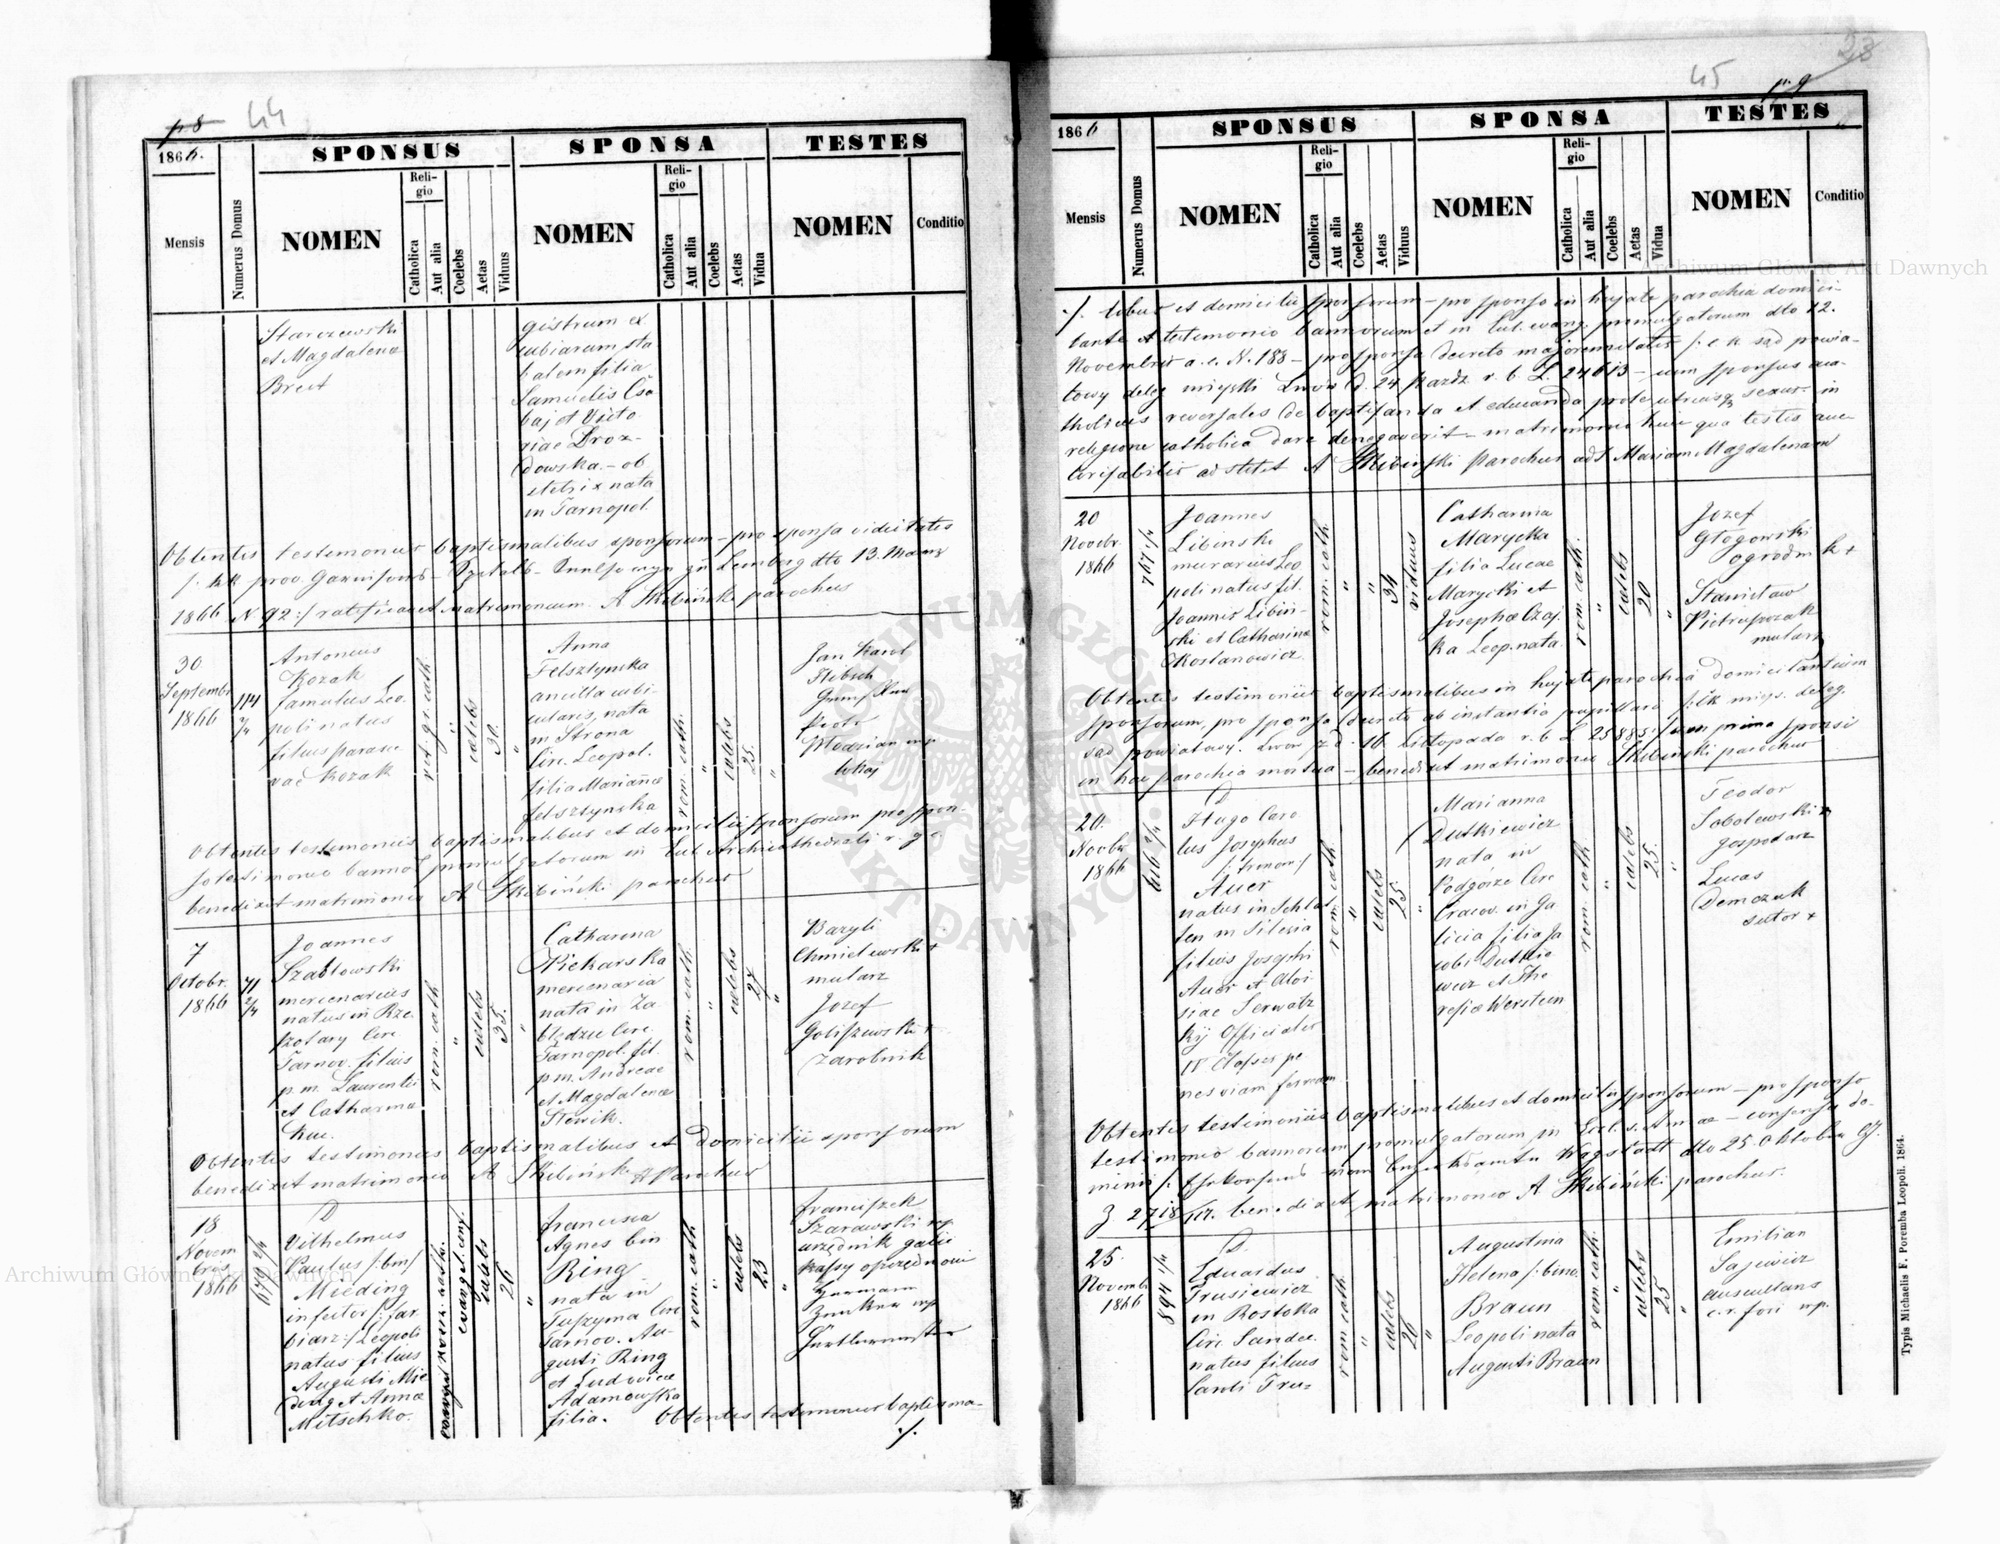 p 8 44
1866.
SPONSUS
SPONSA
TESTES
Mensis
Numerus Domus
NOMEN
Religio
Catholica
Aut alia
Coelebs
Aetas
Viduus
NOMEN
Religio
Catholica
Aut alia
Coelebs
Aetas
Vidua
NOMEN
Conditio
Starczewski
et Magdalena
Breit
gistrum ex
cubiarum sta
balem filia
Samuelis Cso
baj et Victo
riae Droz-
dowska. - ob
stetrix nata
in Tarnopol.
Obtentis testimoniis baptismalibus sponsorum - pro sponsa viduitatis
1866 N 92 :/ ratificavit matrimonium. A Skibiński parochus
30
Septembr
1866
114
2/4
Antonius
Kozak
famulus Leo
poli natus
filius parasce
vae Kozak
rit. gr. cath.
"
caelebs
30.
"
Anna
Felsztynska
ancilla cubi
cularis, nata
in Strona
Circ. Leopol.
filia Mariannae
Felsztynska
rom. cath.
"
caelebs
25.
"
Jan Karol
Piotr
lokaj
Obtentis testimoniis baptismalibus et domicilii sponsorum pro spon-
so testimonio bannor. promulgatorum in Eccl. Archicathedrali r. g. c.
benedixit matrimonio A Skibiński parochus
7
Octobr.
1866
71
2/4
Joannes
Szablowski
mercenarius
natus in Rze
szotary Circ
Tarnov. filius
p. m. Laurentii
et Catharina
Kuc.
rom. cath
"
caelebs
35.
"
Catharina
Piekarska
mercenaria
nata in Za
błędzu Circ.
Tarnopol. fil.
p. m. Andreae
et Magdalenae
Slowik.
rom. cath.
"
caelebs
27
"
Bazyli
Chmielewski +
mularz
Jozef
Goliszewski +
zarobnik
Obtentis testimoniis baptismalibus et domicilii sponsorum
benedixit matrimonio A Skibiński Parochus
18
Novem
bris
1866
679 2/4
D
Vilhelmus
Paulus /: bin/
Mieding
infector /: far
biarz :/ Leopoli
natus filius
Augusti Mie
ding et Anna
Mitschko.
evangel. conf.
caelebs
26
"
Francisca
Agnes bin
Ring
nata in
Tuszyma Circ
Tarnov. Au-
gusti Ring
et Ludovica
Adamowska
filia.
rom. cath
"
caelebs
23
"
Franciszek
Szarawski mp
urzędnik galic
kasy oszczędnosci
Hermann
Zenker mp
Gürtlermeister
Obtentis testimoniis baptisma-
./.
45 p. 9
23
1866
SPONSUS
SPONSA
TESTES
Mensis
Numerus Domus
NOMEN
Religio
Catholica
Aut alia
Coelebs
Aetas
Viduus
NOMEN
Religio
Catholica
Aut alia
Coelebs
Aetas
Vidua
NOMEN
Conditio
./. libus et domicilii sponsorum - pro sponso in hujate parochia domici-
liante et testimonio bannorum et in Eccl. evang. promulgatorum dto 12.
Novembris a. c. N. 188 - pro sponsa decreto majorennitatis /: c. k. sąd powia-
towy deleg miejski Lwów d. 24 Pazdz. r. b. L. 24613 - cum sponsus aca-
tholicus reversales de baptisanda et educanda prole utriusq sexus in
religione catholica dare denegaverit - matrimonio huic qua testis auc-
torisabilis adstitit A Skibiński parochus ad S Mariam Magdalenam
20
Novebr.
1866
767 1/4
Joannes
Libinski
murarius Leo
poli natus fil.
Joannis Libin-
ski et Catharina
Kostanowicz.
rom. cath.
"
"
34
viduus
Catharina
Marycka
filia Lucae
Marycki et
Josepha Czaj
ka Leop. nata
rom. cath.
"
caelebs
20
"
Jozef
Głogowski
ogrodnik +
Stanisław
Pietruszczak
mularz
Obtentis testimoniis baptismalibus in hujate parochia domiciliantium
sponsorum, pro sponsa decreto ab instantia pupillari /: ck miejs. deleg.
sąd powiatowy. Lwów z d. 16. Listopada r. b L 25885 :/ cum prima sponsi
in hac parochia mortua - benedixit matrimonio Skibiński parochus
20.
Novbr
1866
616 2/4
D
Hugo Caro
lus Josephus
/: trenom :/
Auer
natus in Schlat
ten in Silesia
filius Josephi
Auer et Aloi
siae Serwatz
ky Officialis
IV Classis pe
nes viam ferream
rom. cath
"
caelebs
25.
"
Marianna
Dutkiewicz
nata in
Podgórze Circ
Cracov. in Ga
licia filia Ja
cobi Dutkie
wicz et The
resiae Werstein
rom. cath
"
caelebs
25.
"
Teodor
Sobolewski
gospodarz
Lucas
Demczuk
sutor +
Obtentis testimoniis baptismalibus et domicilii sponsorum - pro sponso
testimonio bannorum promulgatorum in Eccl. s. Annae - consensu do-
minii /: Ehekonsens vom Bürgerkbamtu Wagstadt dto 25. Oktober 67.
Z 2718/117. benedixit matrimonio A Skibiński parochus.
25.
Novembr
1866
894 1/4
D.
Eduardus
Trusiewicz
in Rostoka
Circ. Sandec.
natus filius
Santi Tru=
rom. cath
"
caelebs
26
"
Augustina
Helena /: bino.
Braun
Leopoli nata
Augusti Braun
rom. cath.
"
caelebs
25
"
Emilian
Sajewicz
auscultans
c. r. fori mp.
Typis Michaelis F. Poremba Leopoli. 1864.
Archiwum Główne Akt Dawnych
Archiwum Główne Akt Dawnych
ARCHIWUM GŁÓWNE AKT DAWNYCH